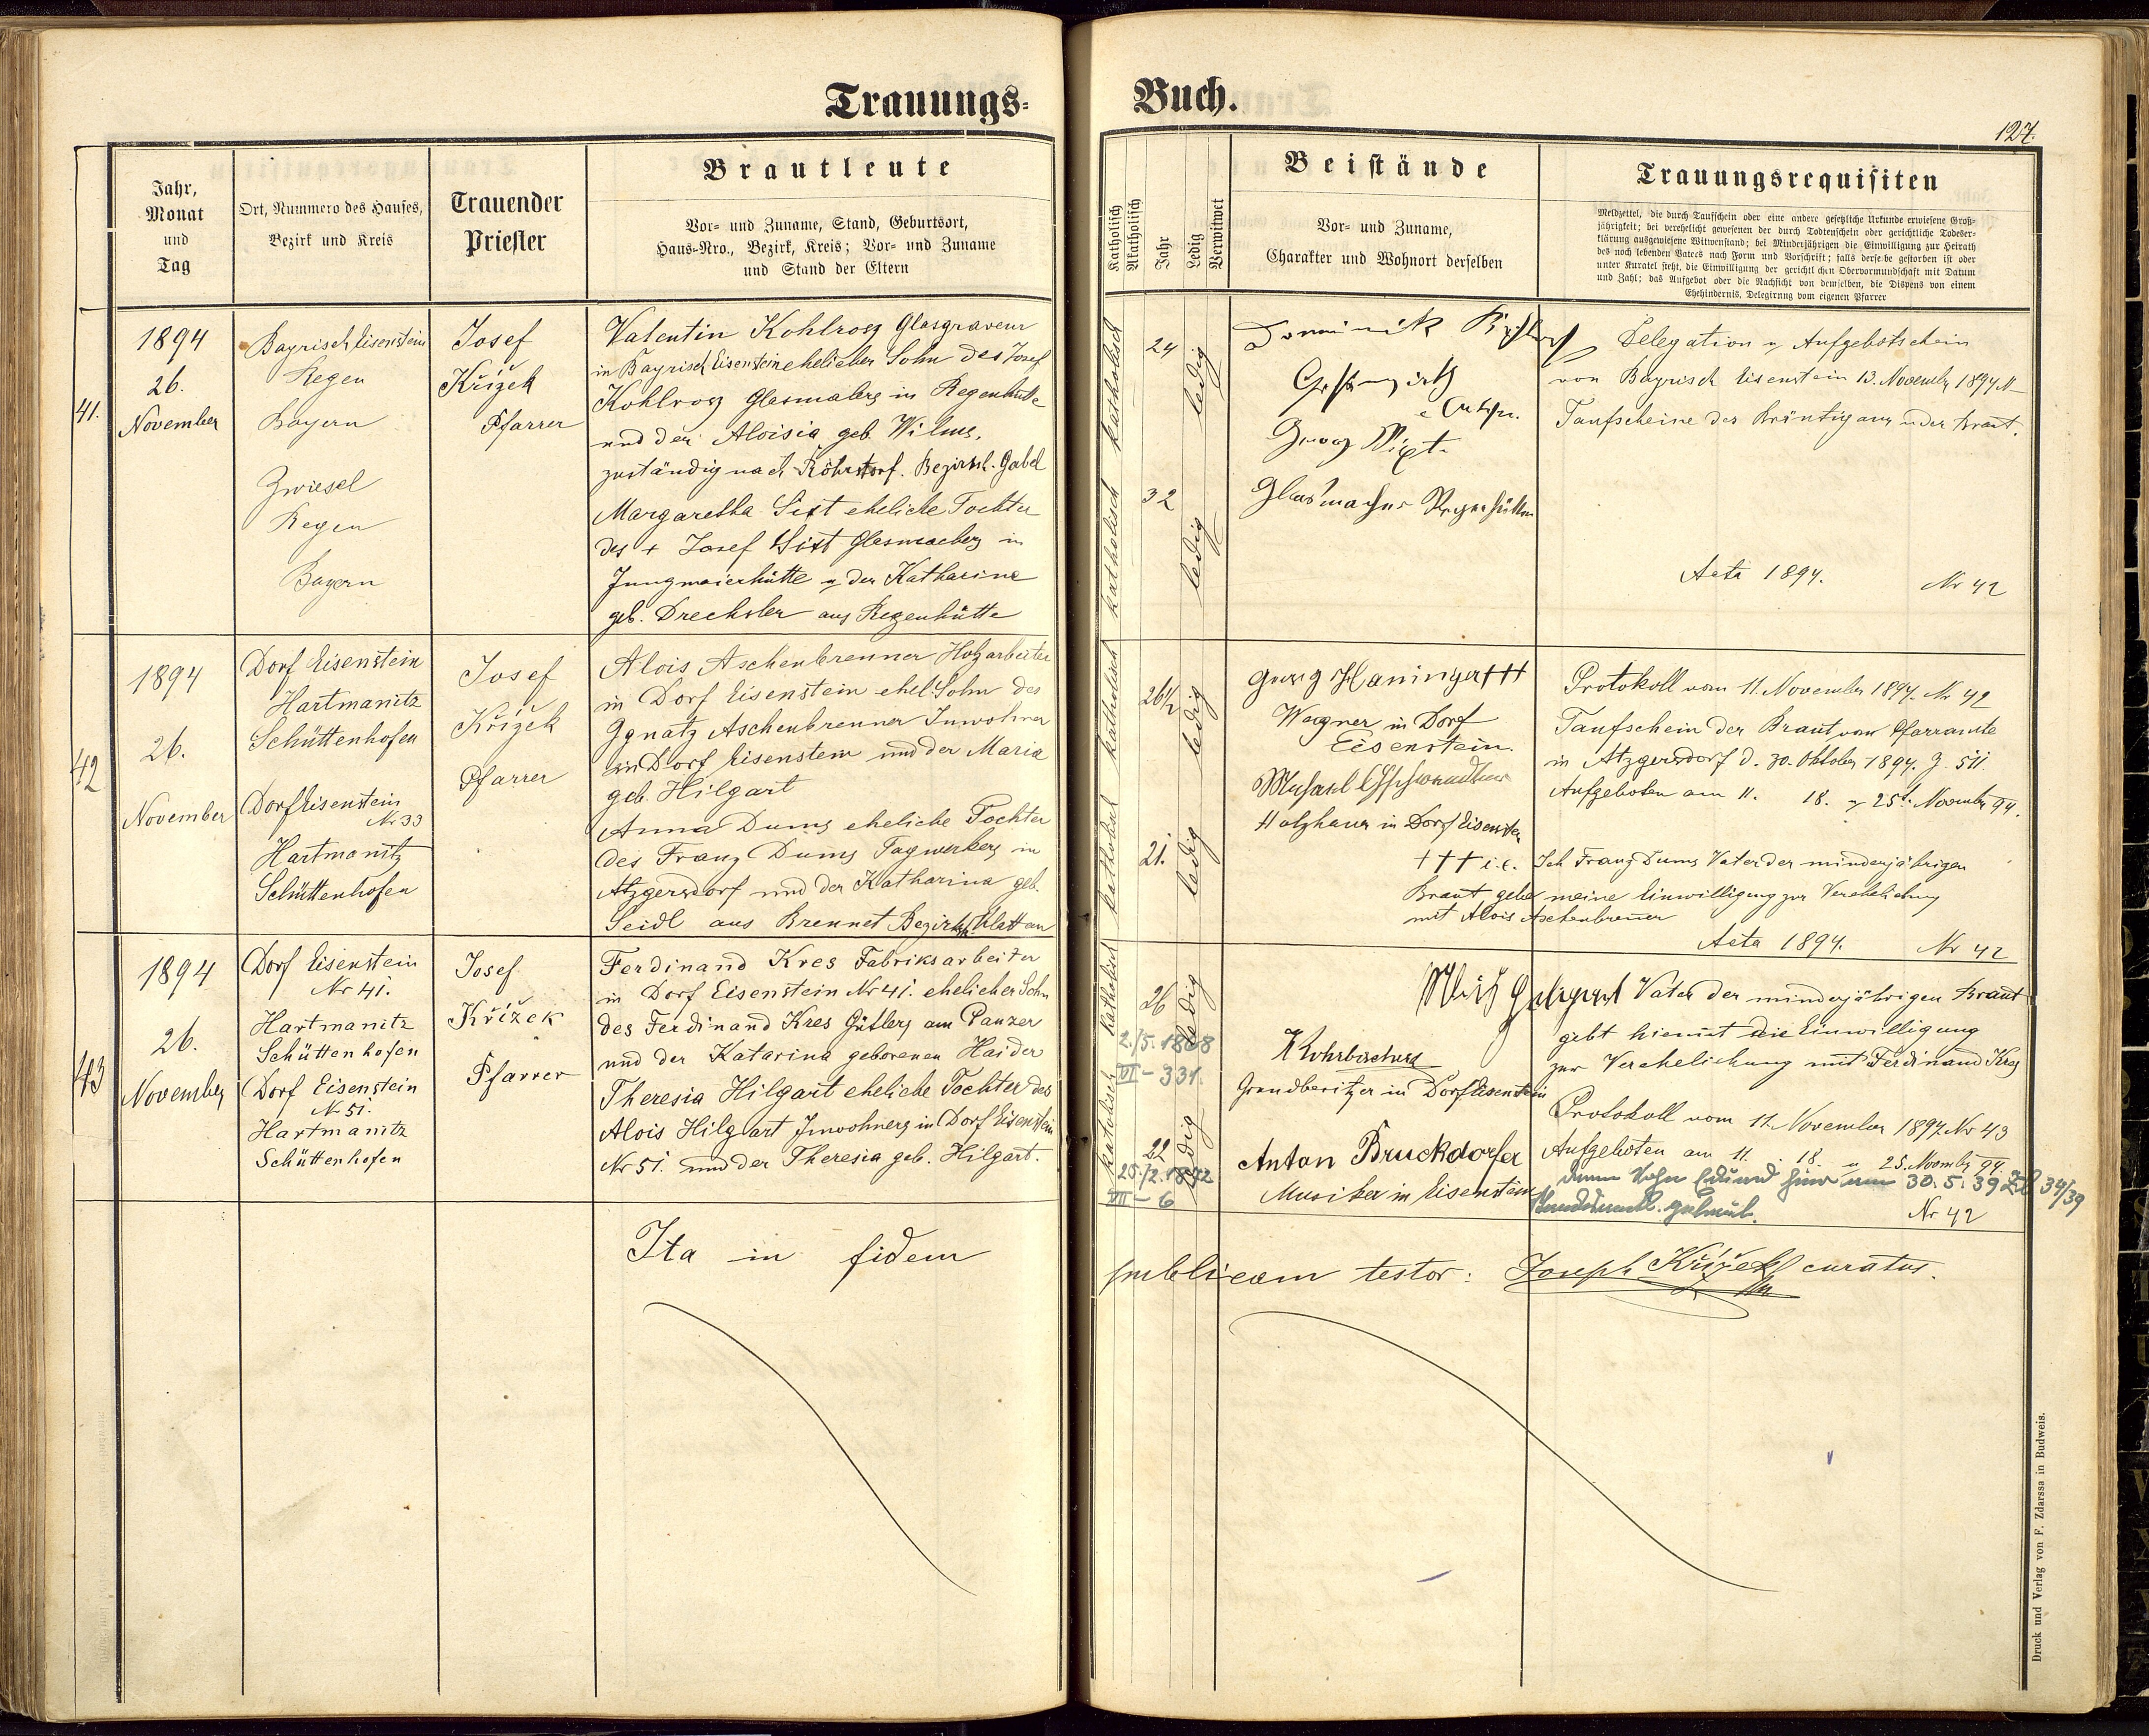 Trauungs-
Jahr,
Monat
und
Tag
Ort, Nummero des Hauses,
Bezirk und Kreis
Trauender
Priester
Brautleute
Vor- und Zuname, Stand, Geburtsort,
Haus-Nro., Bezirk, Kreis; Vor- und Zuname
und Stand der Eltern
41.
1894
26.
November
Bayrisch Eisenstein
Regen
Bayern
Zwiesel
Regen
Bayern
Josef
Křížek
Pfarrer
Valentin Kohlrosz Glasgraveur
in Bayrisch Eisenstein ehelicher Sohn des Josef
Kohlrosz Glasmalers in Regenhütte
und der Aloisia geb. Wilms,
zuständig nach Röhrsdorf. Bezirksh. Gabel
Margaretha Sixt eheliche Tochter
des + Josef Sixt Glasmachers in
Jungmaierhütte u der Katharine
geb. Drechsler aus Regenhütte
42
1894
26.
November
Dorf Eisenstein
Hartmanitz
Schüttenhofen
Dorf Eisenstein
Nr 33
Hartmanitz
Schüttenhofen
Josef
Křížek
Pfarrer
Alois Aschenbrenner Holzarbeiter
in Dorf Eisenstein ehel. Sohn des
Ignatz Aschenbrenner Inwohner
in Dorf Eisenstein und der Maria
geb. Hilgart
Anna Dums eheliche Tochter
des Franz Dums Tagwerkers in
Atzgersdorf und der Katharina geb.
Seidl aus Brennet Bezirksh. Klattau
43
1894
26.
November
Dorf Eisenstein
Nr 41.
Hartmanitz
Schüttenhofen
Dorf Eisenstein
Nr 51.
Hartmanitz
Schüttenhofen
Josef
Křížek
Pfarrer
Ferdinand Kres Fabriksarbeiter
in Dorf Eisenstein Nr 41. ehelicher Sohn
des Ferdinand Kres Gütlers am Panzer
und der Katarina geborenen Haider
Theresia Hilgart eheliche Tochter des
Alois Hilgart Inwohners in Dorf Eisenstein
Nr 51. und der Theresia geb. Hilgart.
Ita in fidem
Buch.
127.
Katholisch
Akatholisch
Jahr
Ledig
Verwitwet
Beistände
Vor- und Zuname,
Charakter und Wohnort derselben
Trauungsrequisiten
Meldzettel, die durch Taufschein oder eine andere gesetzliche Urkunde erwiesene Groß-
jährigkeit; bei verehelicht gewesenen der durch Todtenschein oder gerichtliche Todeser-
klärung ausgewiesene Witwenstand; bei Minderjährigen die Einwilligung zur Heirath
des noch lebenden Vaters nach Form und Vorschrift; falls derselbe gestorben ist oder
unter Kuratel steht, die Einwilligung der gerichtlichen Obervormundschaft mit Datum
und Zahl; das Aufgebot oder die Nachsicht von demselben, die Dispens von einem
Ehehindernis, Delegirung vom eigenen Pfarrer
katholisch
24
ledig
katholisch
32
ledig
Dominik
Georg Sixt
Glasmacher Regenhütten
Delegation u Aufgebotschein
von Bayrisch Eisenstein 13. November 1894
Taufscheine des Bräutigams u der Braut.
Acta 1894. Nr 42
katholisch
26½
ledig
katholisch
21.
ledig
Georg Haninger +++
Wagner in Dorf
Eisenstein.
Michael Gschwendtner
Holzhauer in Dorf Eisenstein
Protokoll vom 11. November 1894. Nr 42
Taufschein der Braut vom Pfarramte
in Atzgersdorf d. 30. Oktober 1894. Z. 511.
Aufgeboten am 11. 18. u 25t. November 94.
+++ i.e. Ich Franz Dums Vater der minderjährigen
Braut gebe meine Einwilligung zur Verehelichung
mit Alois Aschenbrenner
Acta 1894. Nr 42
katholisch
26
ledig
2./5. 1868
VI - 331.
katolisch
22
ledig
25./2. 1872
VII - 6
Grundbesitzer in Dorf Eisenstein
Anton Bruckdorfer
Musiker in Eisenstein
Vater der minderjährigen Braut
gibt hiemit die Einwilligung
zur Verehelichung mit Ferdinand Kres
Protokoll vom 11. November 1894 Nr 43
Aufgeboten am 11. 18. u 25. Novemb. 94.
30. 5. 39 Zl 34/39
Nr 42
publicam testor: Joseph Křížek curatus.
Druck und Verlag von F. Zdarssa in Budweis.